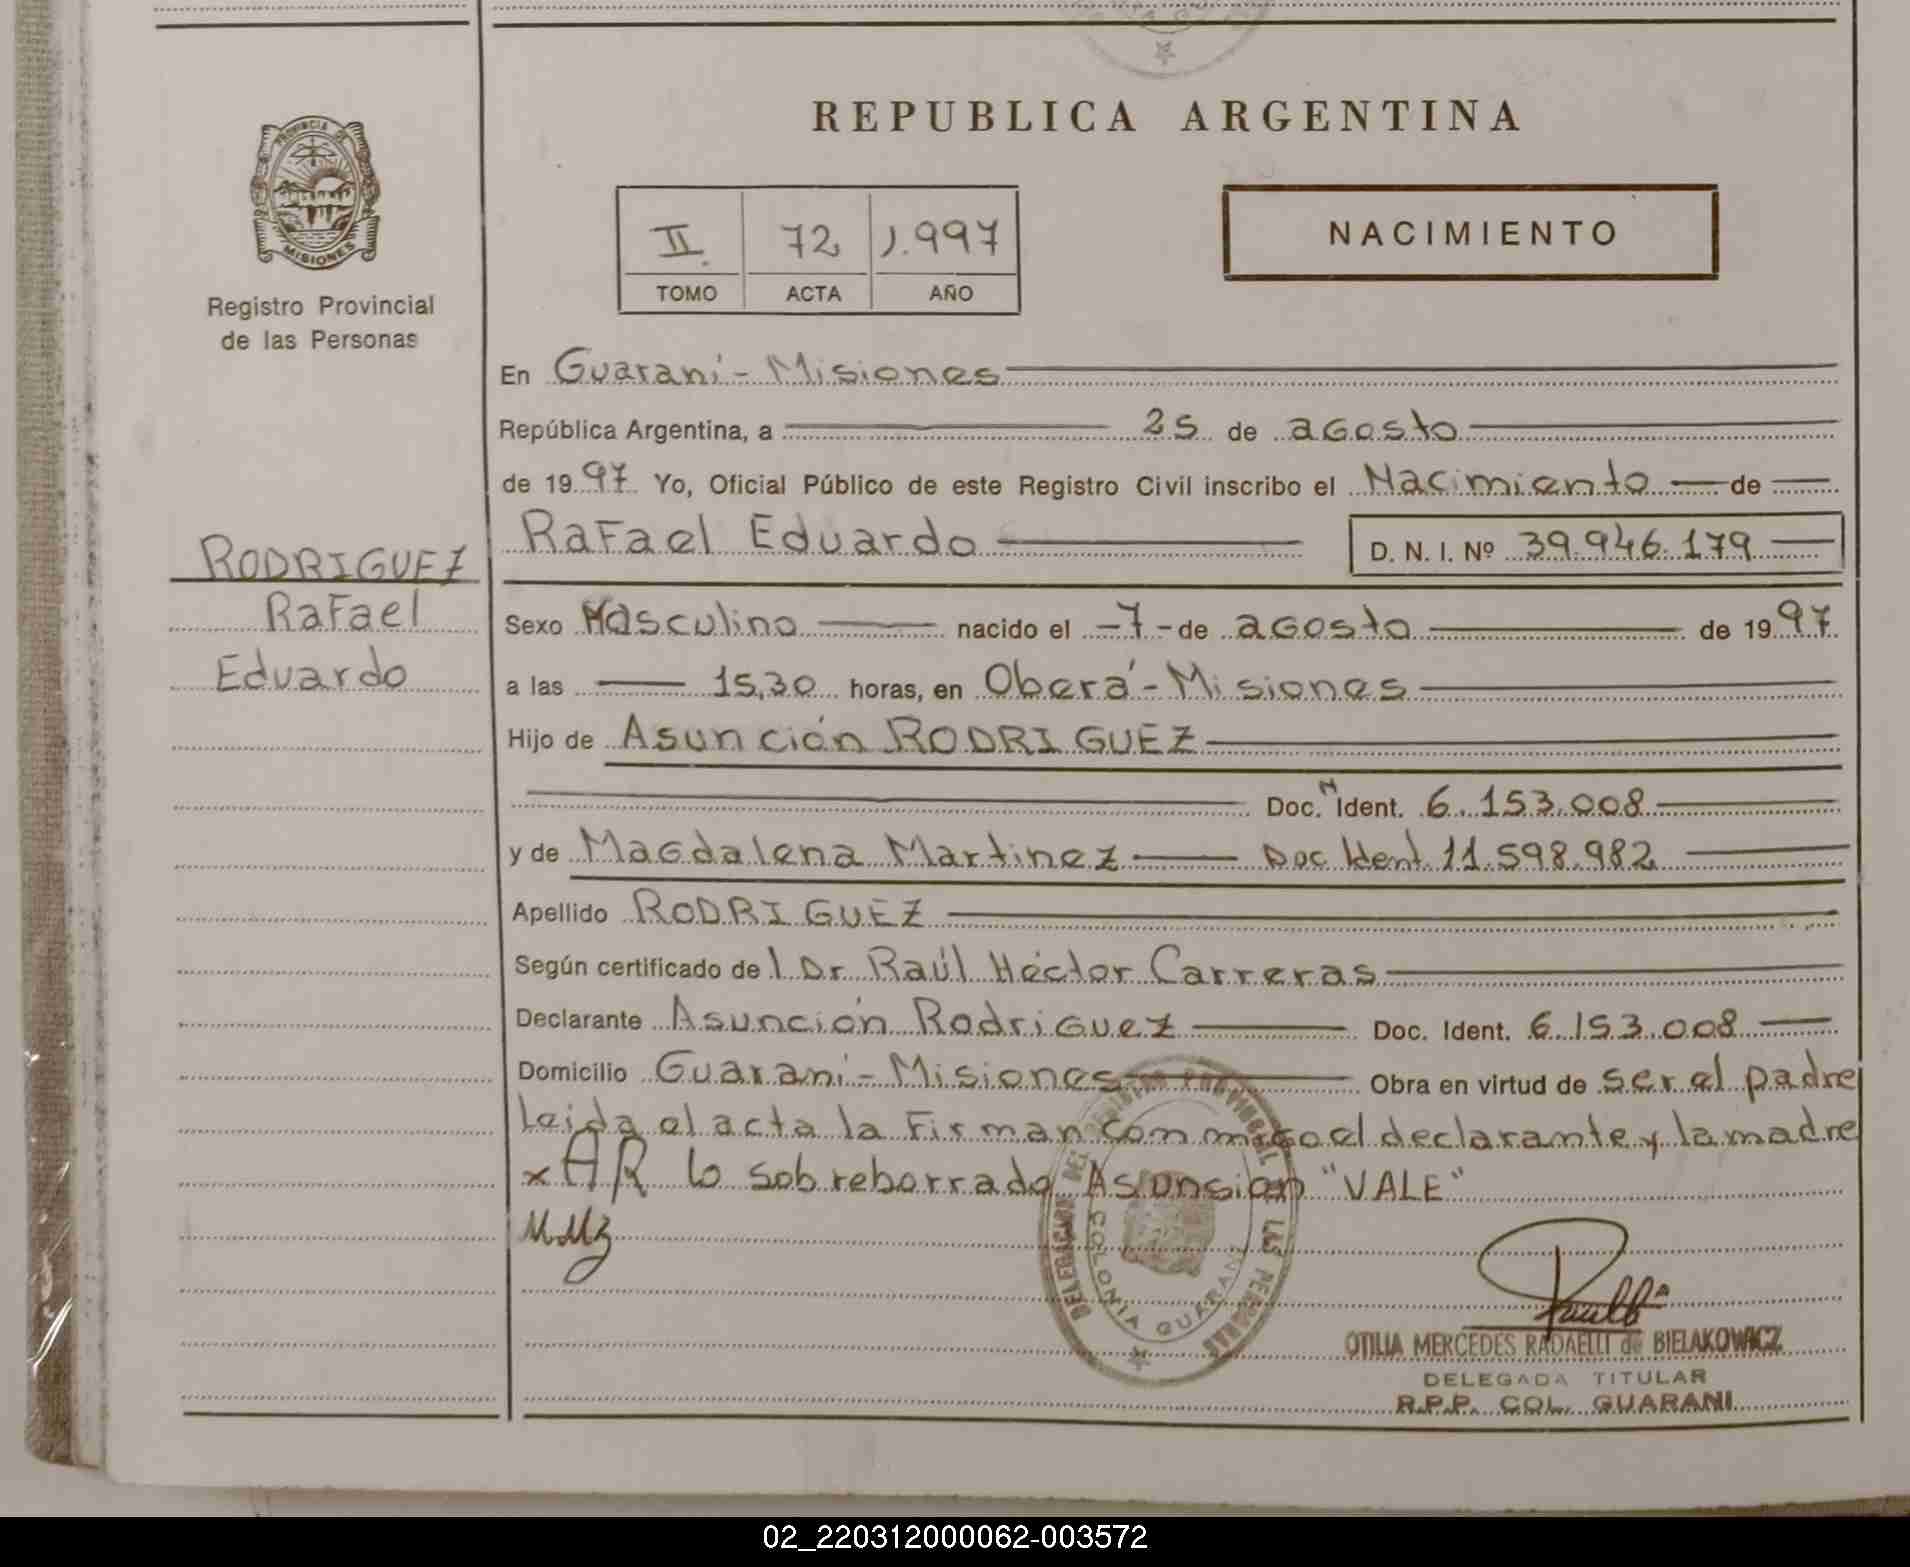 REPUBLICA ARGENTINA
PROVINCIA DE
MISIONES
Registro Provincial
de las Personas
II. 72 1.997
TOMO ACTA AÑO
NACIMIENTO
En Guaraní - Misiones
República Argentina, a 25 de agosto
de 19 97 Yo, Oficial Público de este Registro Civil inscribo el Nacimiento de
Rafael Eduardo D. N. I. Nº 39.946.179
RODRIGUEZ
Rafael
Eduardo
Sexo Masculino nacido el -7- de agosto de 19 97
a las 15,30 horas, en Oberá - Misiones
Hijo de Asunción RODRIGUEZ
Doc. N Ident. 6.153.008
y de Magdalena Martinez Doc Ident. 11.598.982
Apellido RODRIGUEZ
Según certificado de l Dr Raúl Héctor Carreras
Declarante Asunción Rodriguez Doc. Ident. 6.153.008
Domicilio Guaraní - Misiones Obra en virtud de ser el padre
Leida el acta la firman conmigo el declarante y la madre
x AR lo sobreborrado Asunsion "VALE"
DELEGACION DEL REGISTRO PROVINCIAL DE LAS PERSONAS
COLONIA GUARANI
OTILIA MERCEDES RADAELLI de BIELAKOWICZ
DELEGADA TITULAR
R.P.P. COL. GUARANI
02_220312000062-003572